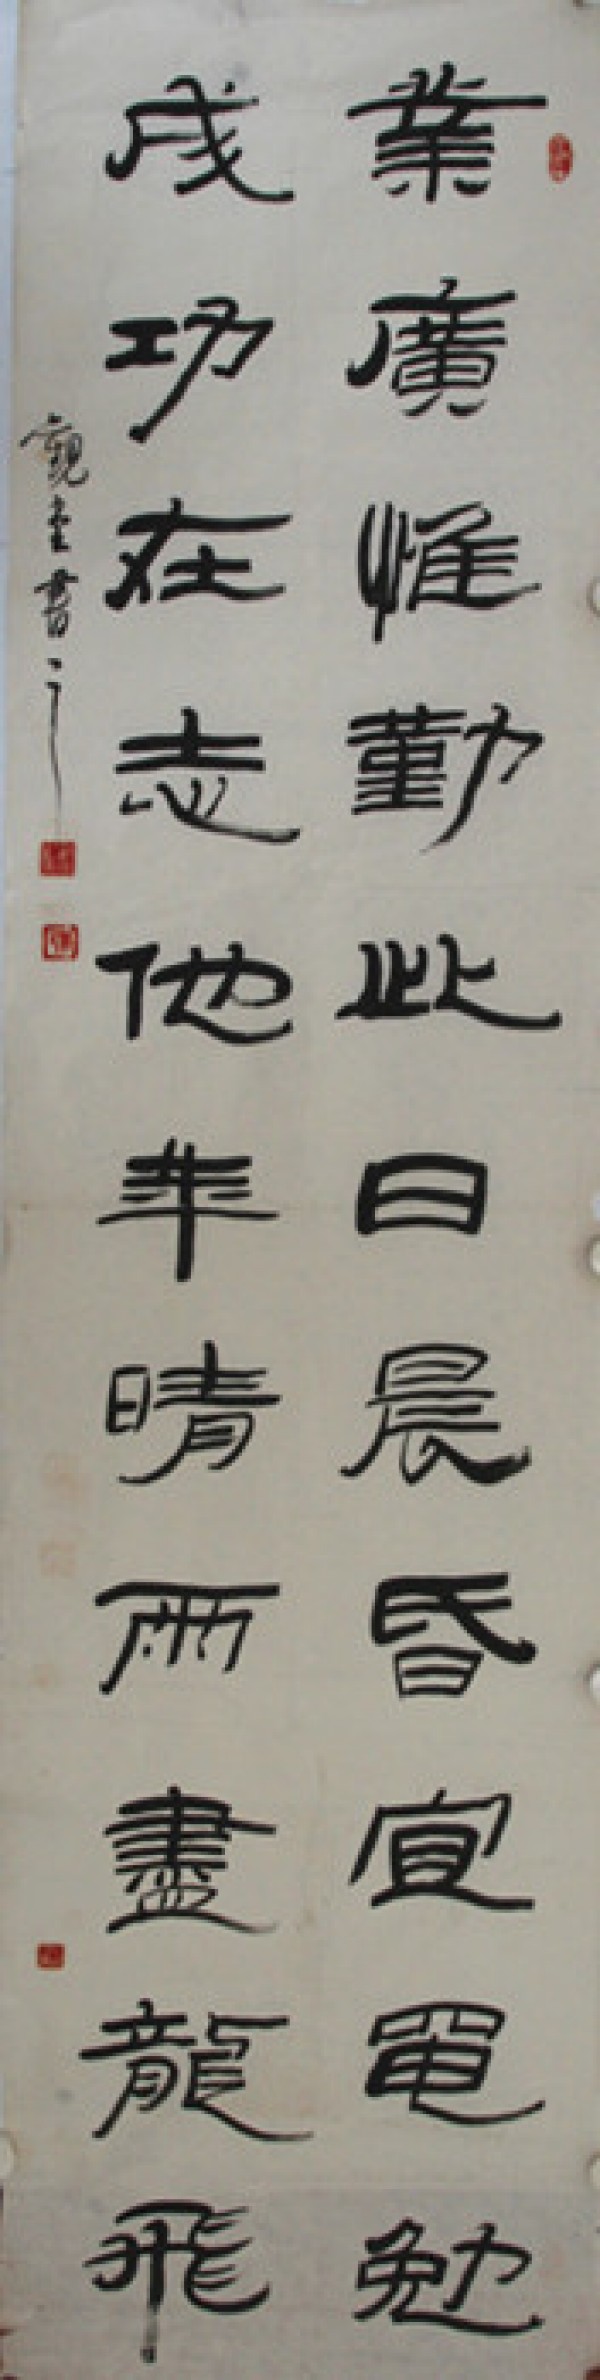 業廣惟勤此日晨昏宜黽勉
成功在志他年晴雨盡龍飛
書